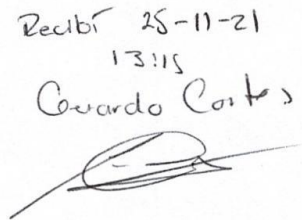 Recibí 25-11-21
13:15
Gerardo Cortes